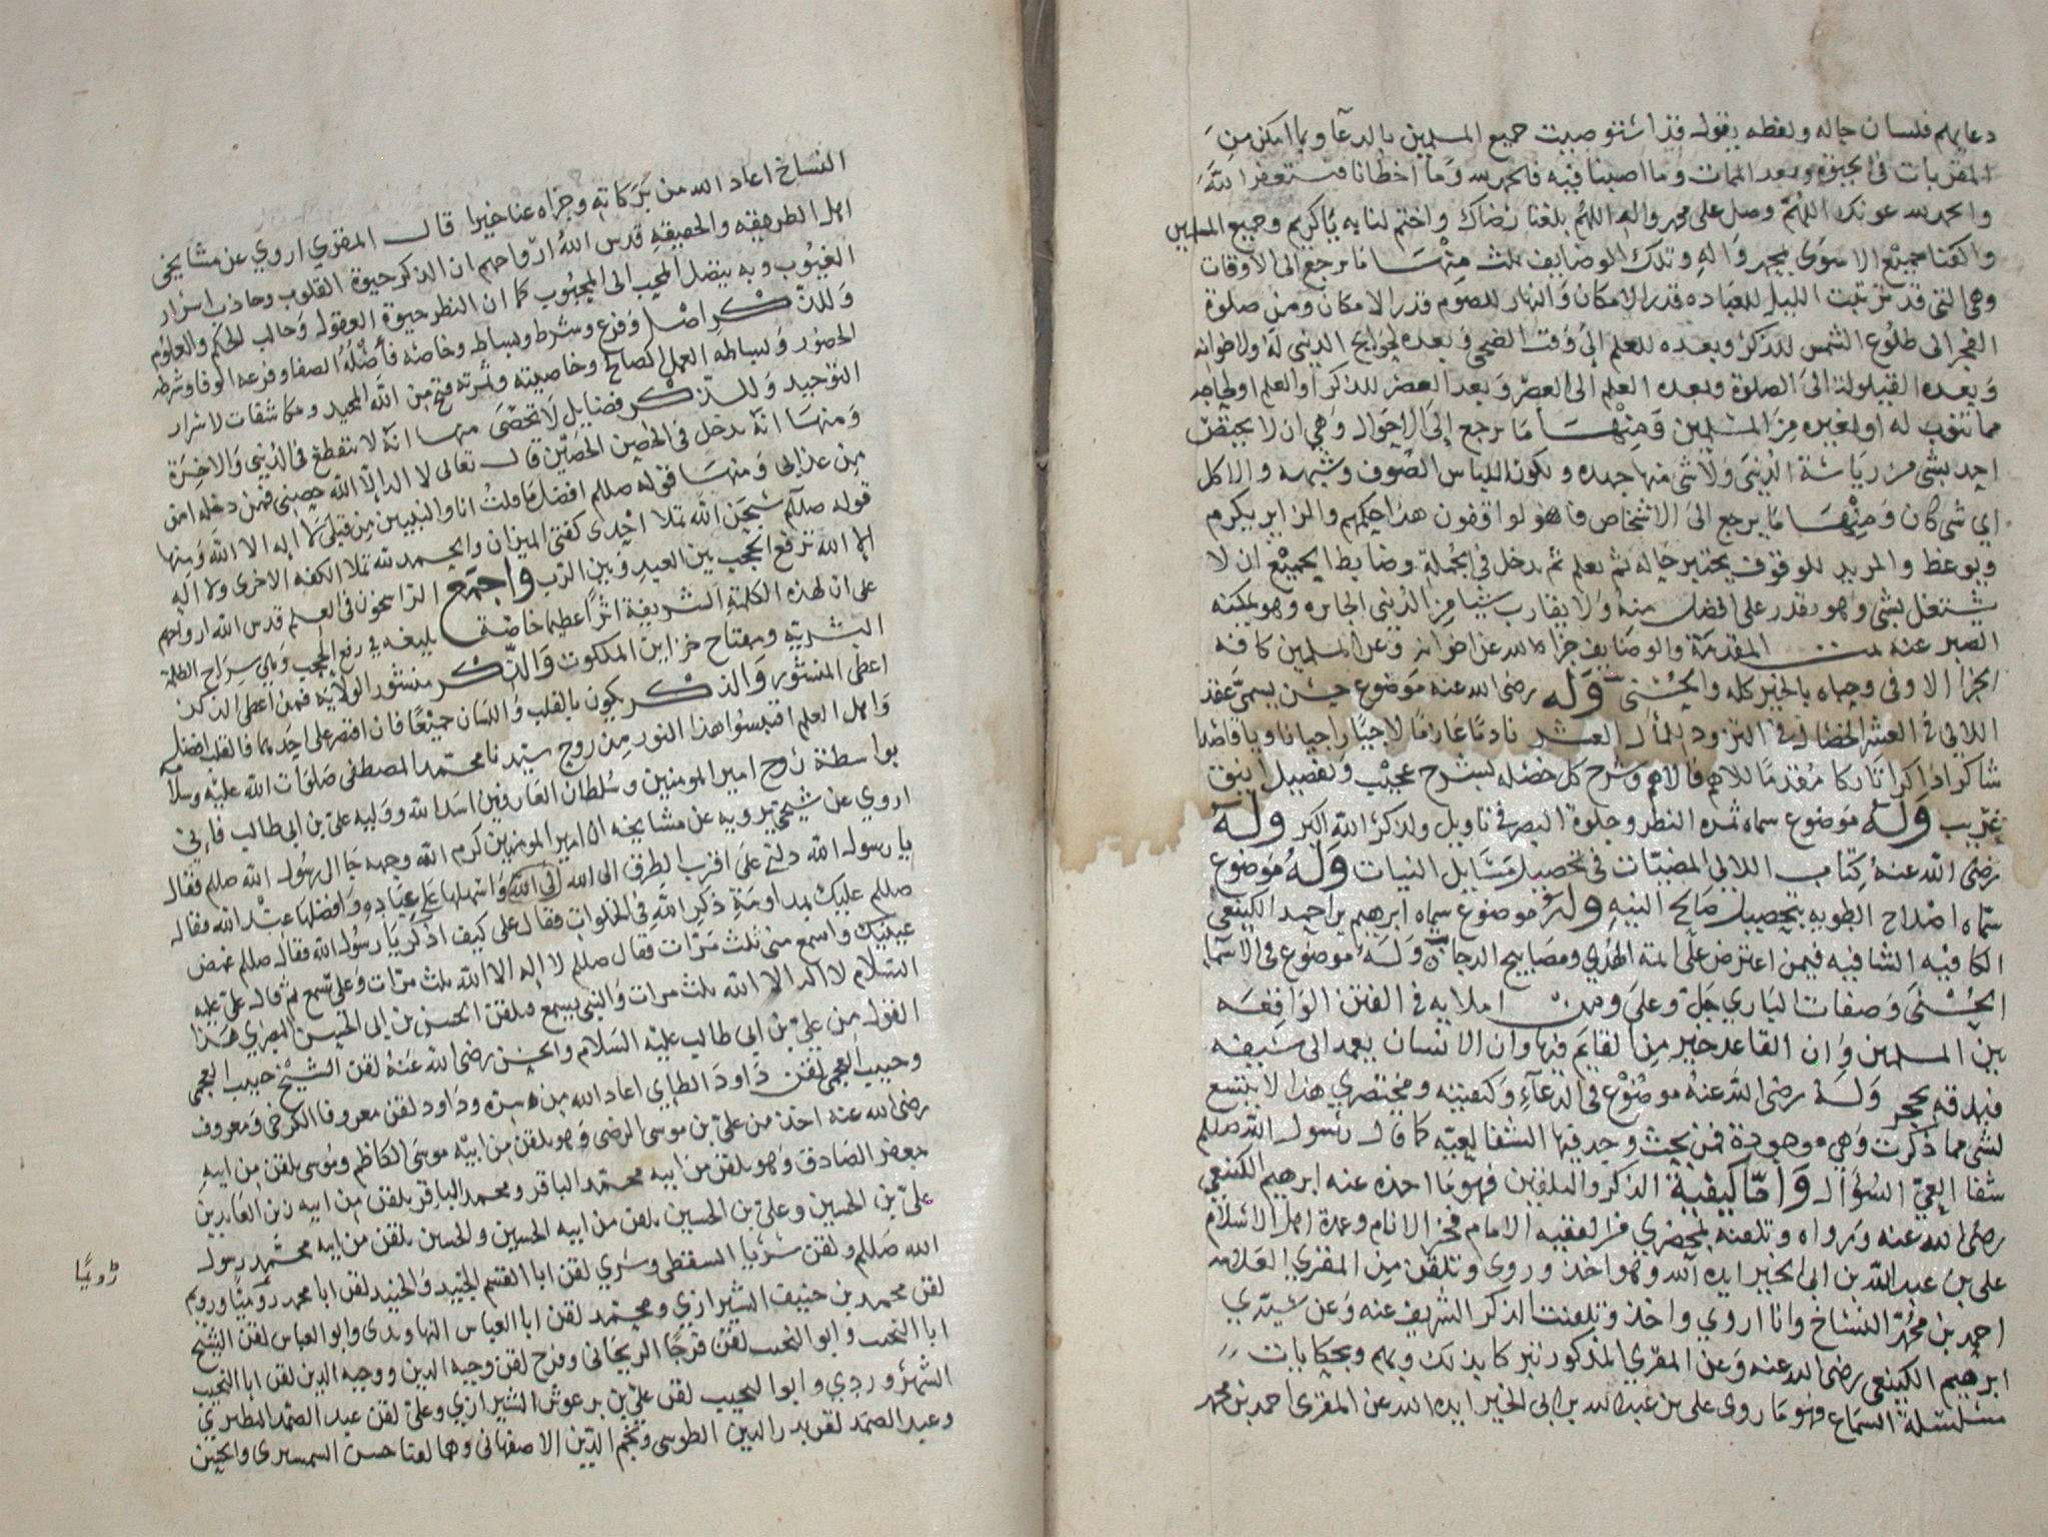 دعايهم فلسان حاله ولفظه بقوله قد استوصيت جميع المسلمين بالدعآ وبما امكن من
المقربات في الحيوة وبعد الممات وما اصبنا فيه فالحمد لله وما اخطانا فنستغفر الله
والحمد لله عونك اللهم وصل على محمد واله اللهم بلغنا رضاك واختم لنا به يا كريم وجميع المسلمين
واكفنا جميع الاسوى بمحمد واله وتلك الوضايف ثلث منها ما يرجع الى الاوقات
وهي التي قد ترتبت الليل للعباده قدر الامكان والنهار للصوم قدر الامكان ومن صلوة
الفجر الى طلوع الشمس للذكر وبعده للعلم الى وقت الضحى وبعده لحوايج الدنيى له ولاخوانه
وبعده القيلولة الى الصلوة وبعده العلم الى العصر وبعد العصر للذكر او العلم او لحاجه
مما تنوب له او لغيره من المسلمين ومنها ما يرجع الى الاحوال وهي ان لا يختص
احد بشي من رياسة الدنيى ولا شي منها جهده ويكون اللباس الصوف وشبهه والاكل
اي شي كان ومنها ما يرجع الى الاشخاص فاهو لو اقفون هذا حكمهم والزاير يكرم
ويوعظ والمريد للوقوف يختبر حاله ثم يعلم ثم يدخل في الجملة وضابط الجميع ان لا
يشتغل بشي وهو يقدر على افضل منه ولا يقارب شيا من الدنيى الجايره وهو يمكنه
الصبر عنه تمت المقدمة والوضايف جزاه الله عن اخوانه وعن المسلمين كافه
الجزا الاوفى وحباه بالخير كله والحسنى وله رضى الله عنه موضوع حسن يسمى عقد
اللالي في العشر الخصال في التزود للمأل العشر نادما عازما لاجيا راجيا ناويا قاصدا
شاكرا ذاكرا تاركا مقدما للاهم فالاهم وشرح كل خصله بشرح عجيب وتفصيل انيق
غريب وله موضوع سماه ثمره النظر وجلوة البصر في تاويل ولذكر الله اكبر وله
رضى الله عنه كتاب اللالي المضيات في تحصيل مسايل النيات وله موضوع
سماه اصلاح الطويه بتحصيل صالح النيه وله موضوع سماه ابرهيم بن احمد الكينعي
الكافيه الشافيه فيمن اعترض على ايمة الهدى ومصابيح الدجا وله موضوع في الاسما
الحسنى وصفات الباري جل وعلى ومن املايه في الفتن الواقعه
بين المسلمين وان القاعد خير من القايم فيها وان الانسان يعمد الى سيفه
فيدقه بحجر وله رضى الله عنه موضوع في الدعآء وكيفيته ومختصري هذا لا يتسع
لشي مما ذكرت وهي موجودة فمن بحث وجد فيها الشفا لعيه كما قال رسول الله صللم
شفا العي السؤال واما كيفية الذكر والتلقين فهو ما اخذه عنه ابرهيم الكينعي
رضى الله عنه ورواه وتلقنه بمحضري من الفقيه الامام فخر الانام وعمدة اهل الاسلام
علي بن عبد الله بن ابي الخير ايده الله وهو اخذ وروى وتلقن من المقري العلامه
احمد بن محمد النساخ وانا اروي واخذ وتلقنت الذكر الشريف عنه وعن سيدي
ابرهيم الكينعي رضى الله عنه وعن المقري المذكور نبركا بذلك وبهم وبحكايات
مسلسلة السماع وهو ما روى علي بن عبد الله بن ابي الخير ايده الله عن المقري احمد بن محمد
النساخ اعاد الله من بركاته وجزاه عنا خيرا قال المقري اروي عن مشايخي
اهل الطريقه والحقيقه قدس الله ارواحهم ان الذكر حيوة القلوب وجاذب اسرار
الغيوب وبه يتصل المحب الى المحبوب كما ان النظر حيوة العقول وجالب الحكم والعلوم
وللذكر اصل وفرع وشرط وبساط وخاصه فأصله الصفا وفرعه الوفا وشرطه
الحضور وبساطه العمل الصالح وخاصيته وثمرته فتح من الله المجيد ومكاشفات لاسرار
التوحيد وللذكر فضايل لا تحصى منها انه لا ينقطع في الدنيى والاخرة
ومنها انه يدخل في الحصن الحصين قال تعالى لا اله الا الله حصني فمن دخله امن
من عذابي ومنها قوله صللم افضل ما قلت انا والنبيين من قبلي لا اله الا الله ومنها
قوله صللم سبحن الله تملا احدى كفتي الميزان والحمد لله تملا الكفه الاخرى ولا اله
الا الله ترفع الحجب بين العبد وبين الرب واجتمع الراسخون في العلم قدس الله ارواحهم
على ان لهذه الكلمة الشريفة اثرا عظيما خاصة بليغه في رفع الحجب وهي سراج الظلمة
البشريه ومفتاح خزاين الملكوت والذكر منشور الولايه فمن اعطى الذكر
اعطى المنشور والذكر يكون بالقلب واللسان جميعا فان اقتصر على احدهما فالقلب افضل
واهل العلم اقتبسوا هذا النور من روح سيدنا محمد المصطفى صلوات الله عليه وسلامه
بواسطة روح امير المومنين وسلطان العارفين اسد الله ووليه علي بن ابي طالب فاني
اروي عن شيخي يرويه عن مشايخه ان امير المومنين كرم الله وجهه جا الى رسول الله صللم فقال
يا رسول الله دلني على اقرب الطرق الى الله واسهلها على عباده وافضلها عند الله فقال
صللم عليك بمداومة ذكر الله في الخلوات فقال علي كيف اذكر يا رسول الله فقال صللم غمض
عينيك واسمع مني ثلث مرات فقال صللم لا اله الا الله ثلث مرات وعلي يسمع ثم قال علي عليه
السلام لا اله الا الله ثلث مرات والنبي يسمع فلقن الحسن بن ابي الحسن البصري هذا
القول من علي بن ابي طالب عليه السلام والحسن رضى الله عنه لقن الشيخ حبيب العجمي
وحبيب العجمي لقن داود الطاي اعاد الله من سره وداود لقن معروفا الكرخي ومعروف
رضى الله عنه اخذ من علي بن موسى الرضى وهو تلقن من ابيه موسى الكاظم وموسى تلقن من ابيه
جعفر الصادق وهو تلقن من ابيه محمد الباقر ومحمد الباقر تلقن من ابيه زين العابدين
علي بن الحسين وعلي بن الحسين تلقن من ابيه الحسين والحسين تلقن من ابيه محمد رسول
الله صللم ولقن سريا السقطي وسري لقن ابا القسم الجنيد والجنيد لقن ابا محمد رويما ورويم
لقن محمد بن حنيف الشيرازي ومحمد لقن ابا العباس النهاوندى وابو العباس لقن الشيخ
ابا النجيب وابو النجيب لقن فرجا الريحاني وفرج لقن وجيه الدين ووجيه الدين لقن ابا النجيب
الشهروردي وابو النجيب لقن علي بن برعوش الشيرازي وعلي لقن عبد الصمد النطبري
وعبد الصمد لقن بدر الدين الطوسي ونجم الدين الاصفهاني وهما لقنا حسن السمسرى والحسن
رويما